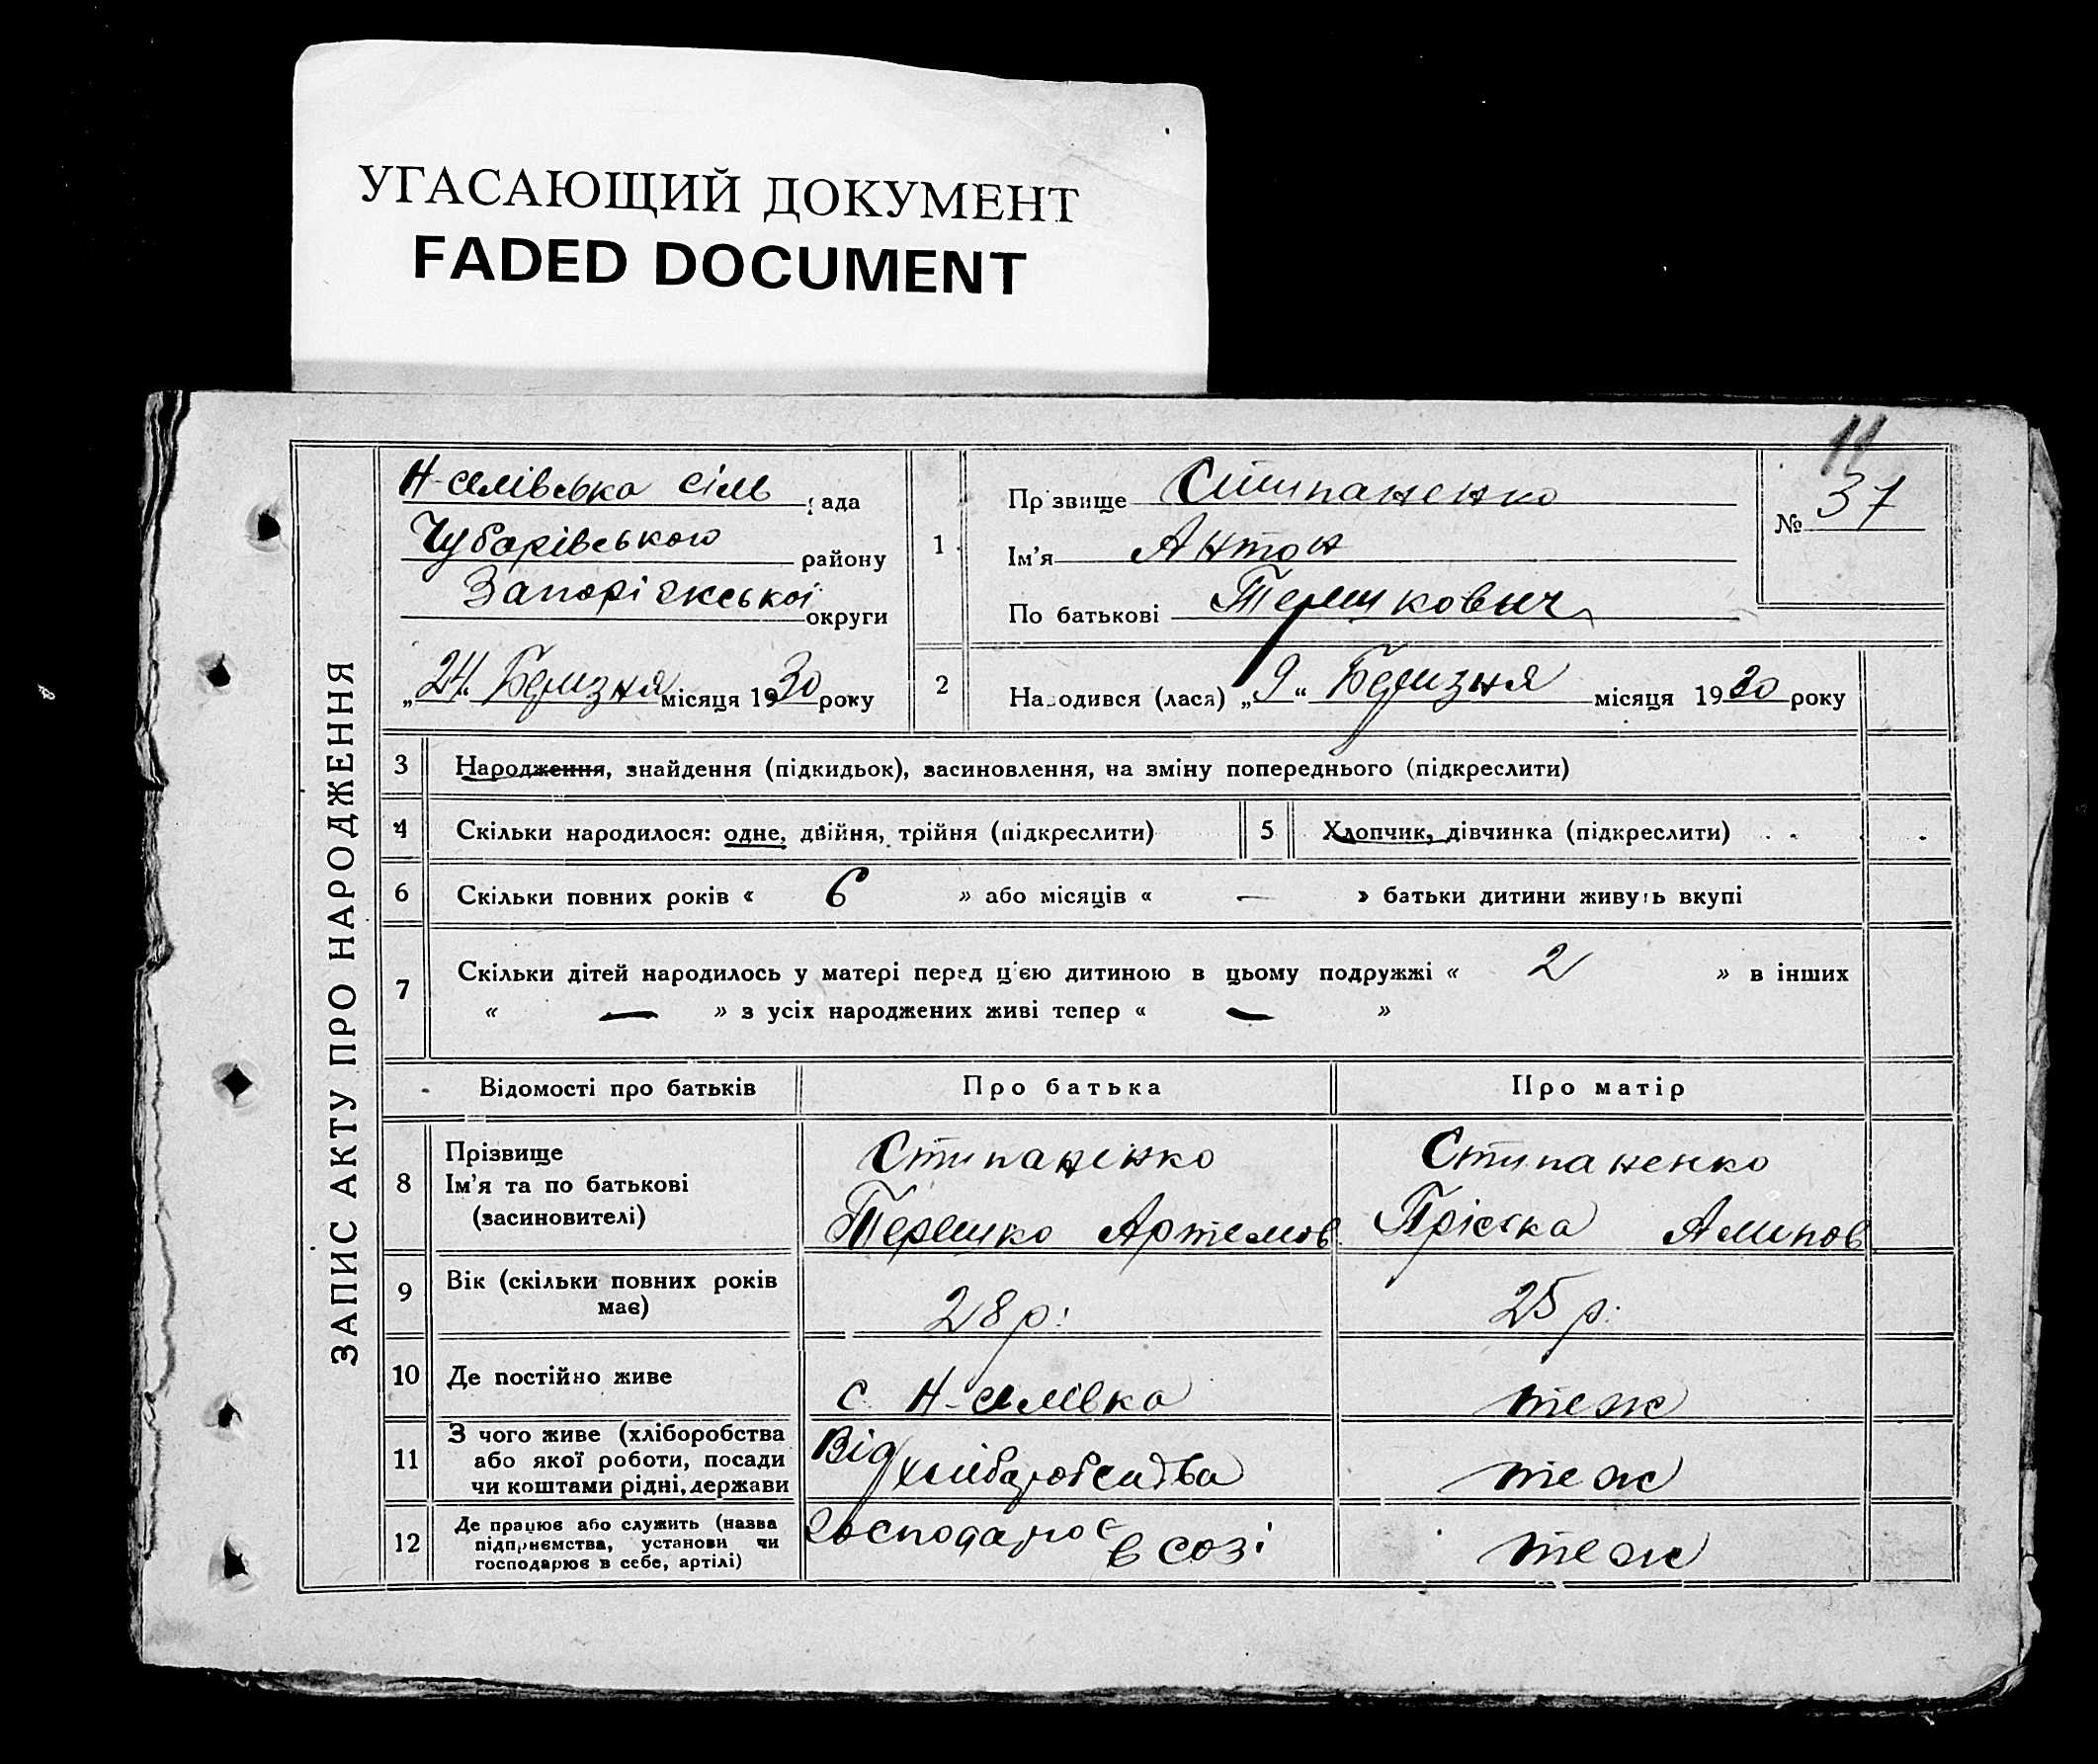 УГАСАЮЩИЙ ДОКУМЕНТ
FADED DOCUMENT
11
ЗАПИС АКТУ ПРО НАРОДЖЕННЯ
сіль рада
Чубарівського району
Запоріжської округи
„24" Березня місяця 1930 року
1
Прізвище Стипаненко
Ім'я Антон
По батькові Терешкович
№ 37
2
Народився (лася) „9" Березня місяця 1930 року
3 Народження, знайдення (підкидьок), засиновлення, на зміну попереднього (підкреслити)
4 Скільки народилося: одне, двійня, трійня (підкреслити)
5 Хлопчик, дівчинка (підкреслити)
6 Скільки повних років « 6 » або місяців « — » батьки дитини живуть вкупі
7 Скільки дітей народилось у матері перед ц'єю дитиною в цьому подружжі « 2 » в інших
« — » з усіх народжених живі тепер « — »
Відомості про батьків Про батька Про матір
8 Прізвище
Ім'я та по батькові
(засиновителі)
Стипаненко
Терешко Артемов.
Стипаненко
Пріська
9 Вік (скільки повних років
має)
28 р.
25 р.
10 Де постійно живе
с.
теж
11 З чого живе (хліборобства
або якої роботи, посади
чи коштами рідні, держави
Від
хліборобства
теж
12 Де працює або служить (назва
підприємства, установи чи
господарює в себе, артілі)
Господарює
в созі
теж